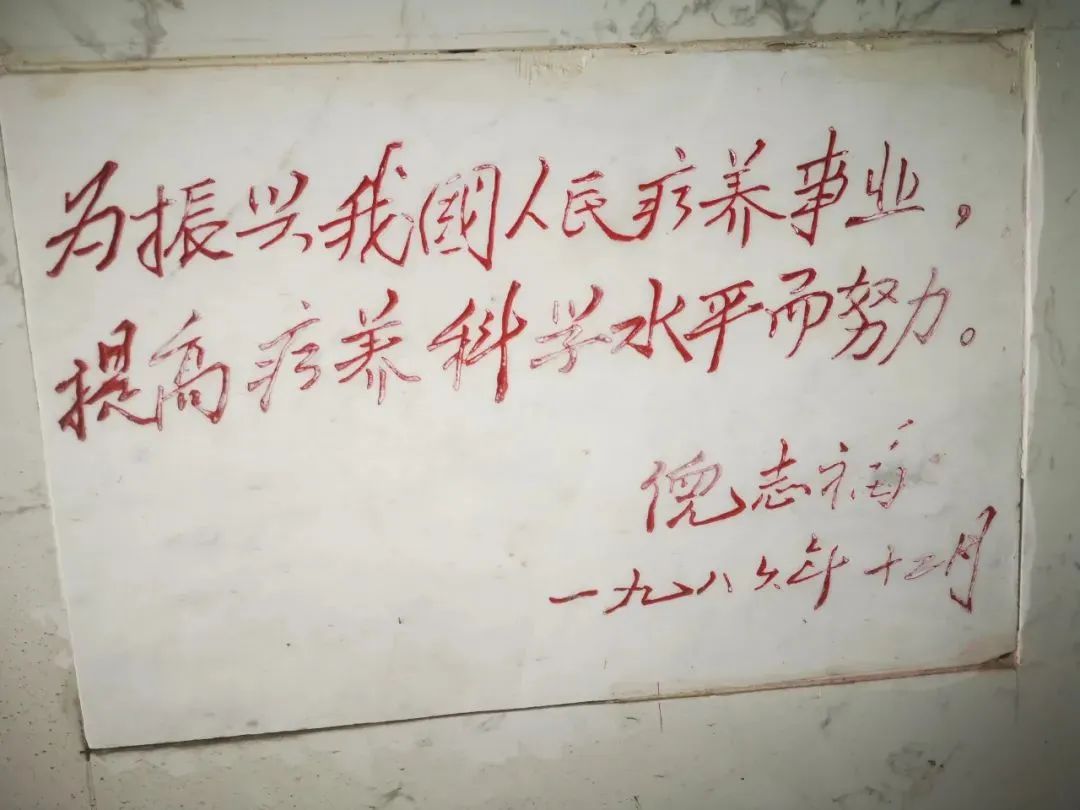 为振兴我國人民疗养事业，
提高疗养科学水平而努力。
倪志福
一九八六年十二月